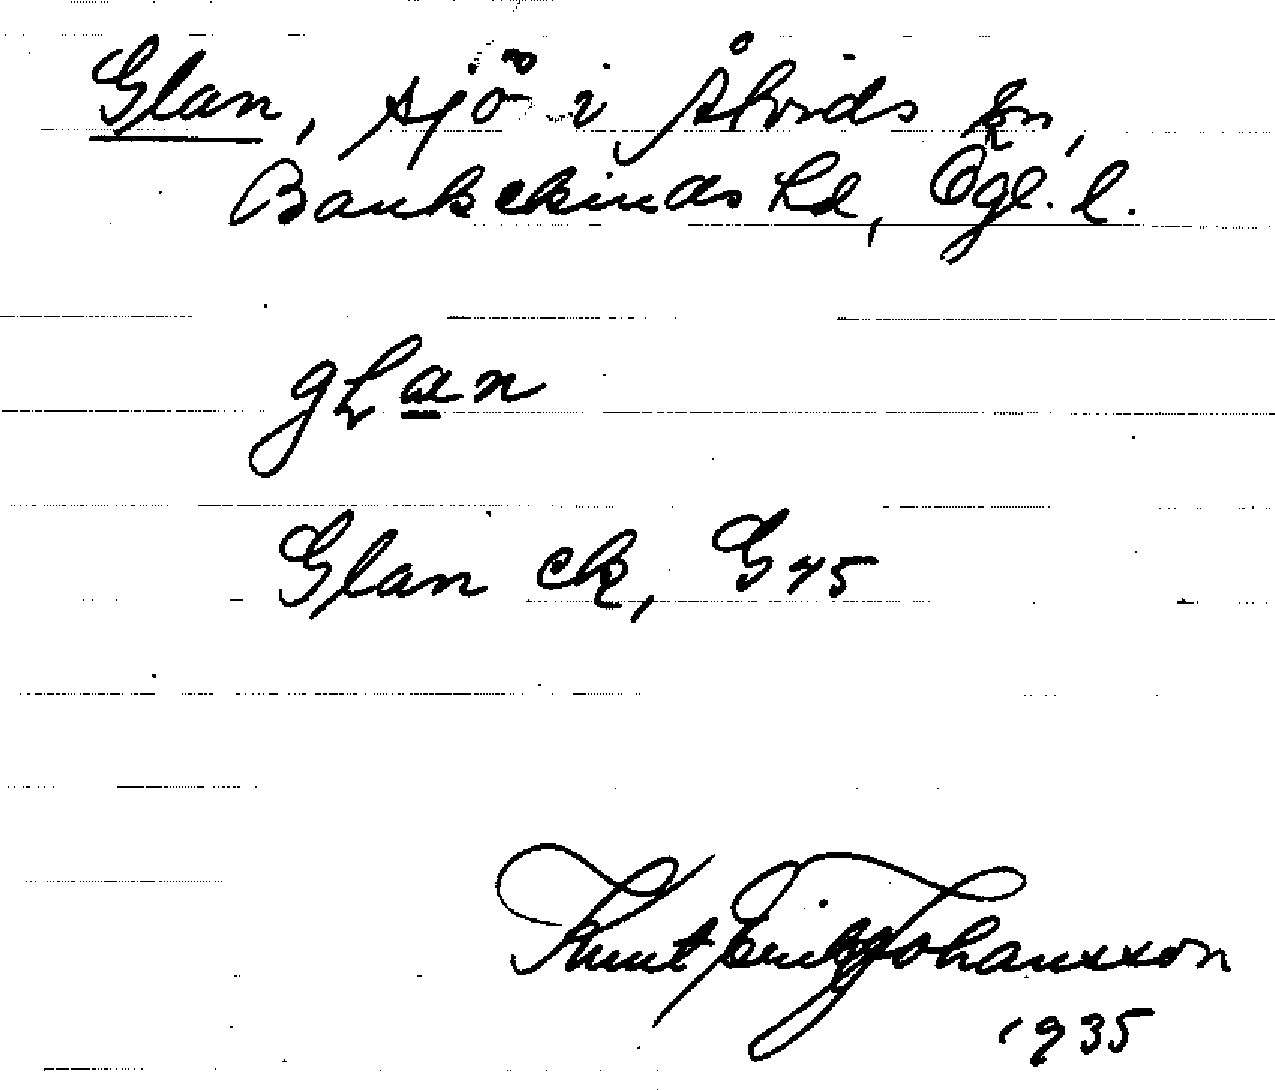 Glan, sjö i Åtvids sn,
Bankekinds hd, Ögl. l.
glan
Glan ek, G 45
Knut Erik Johansson
1935